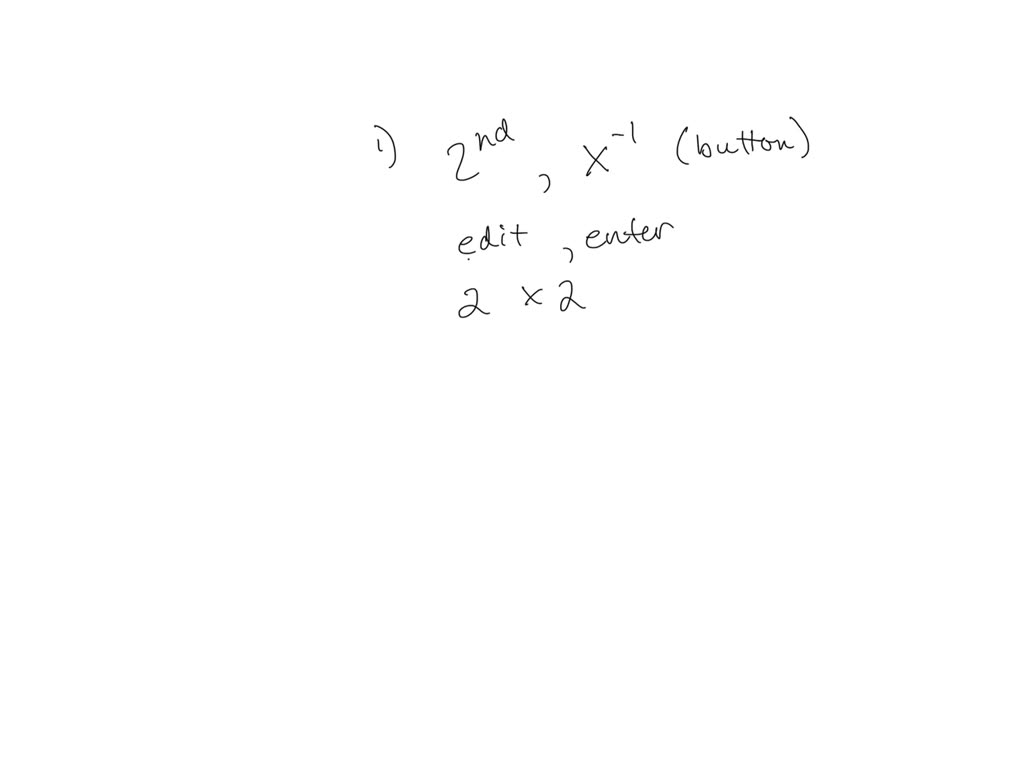 1) 2nd, x⁻¹ (button)
edit, enter
2 x 2